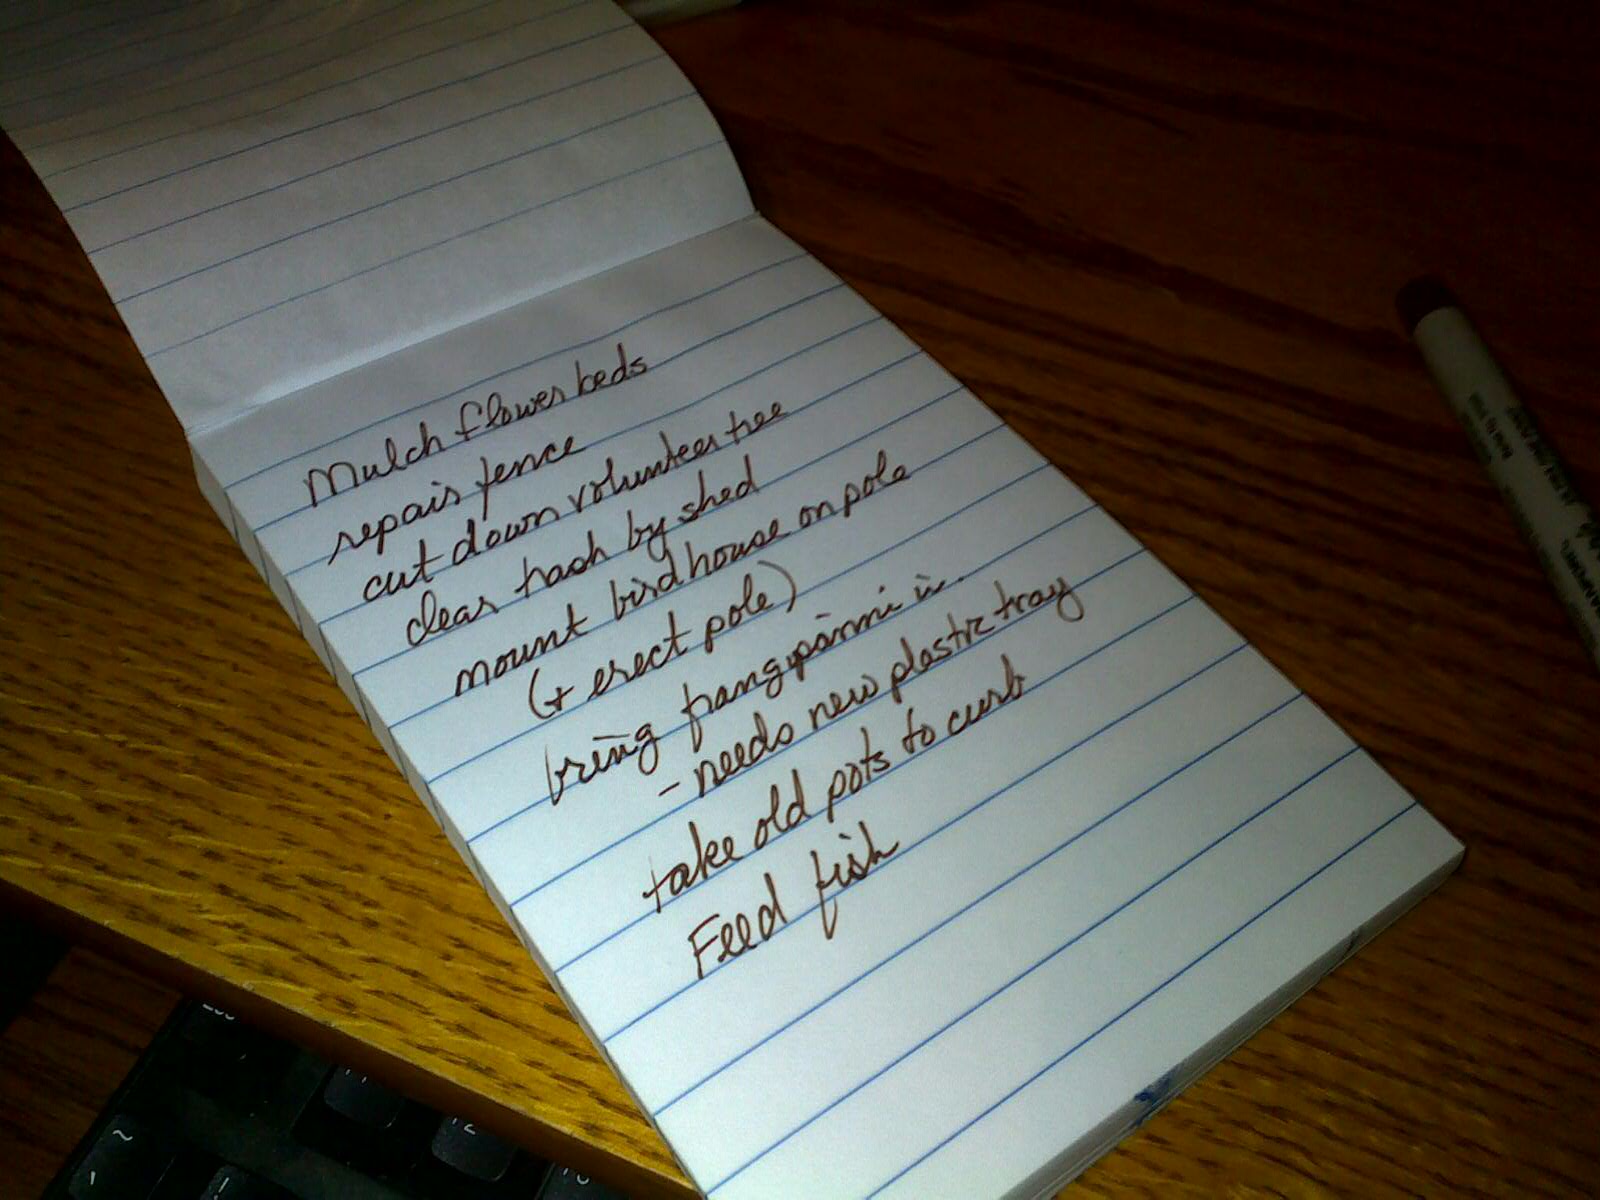 Mulch flower beds
repair fence
cut down volunteer tree
clear trash by shed
mount birdhouse on pole
(+ erect pole)
bring frangipanni in.
- needs new plastic tray
take old pots to curb
Feed fish